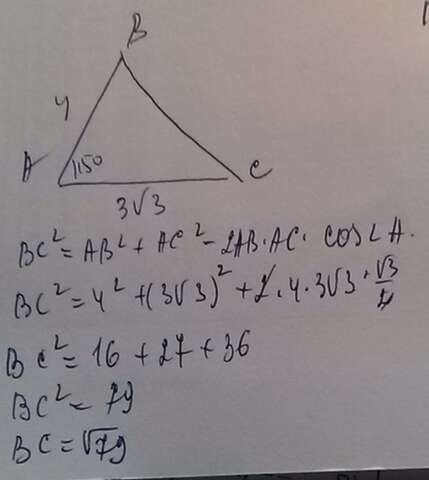 B
4
A
150
C
3√3
BC² = AB² + AC² - 2AB·AC· cos∠A.
BC² = 4² + (3√3)² + 2·4·3√3·√3/2
BC² = 16 + 27 + 36
BC² = 79
BC = √79